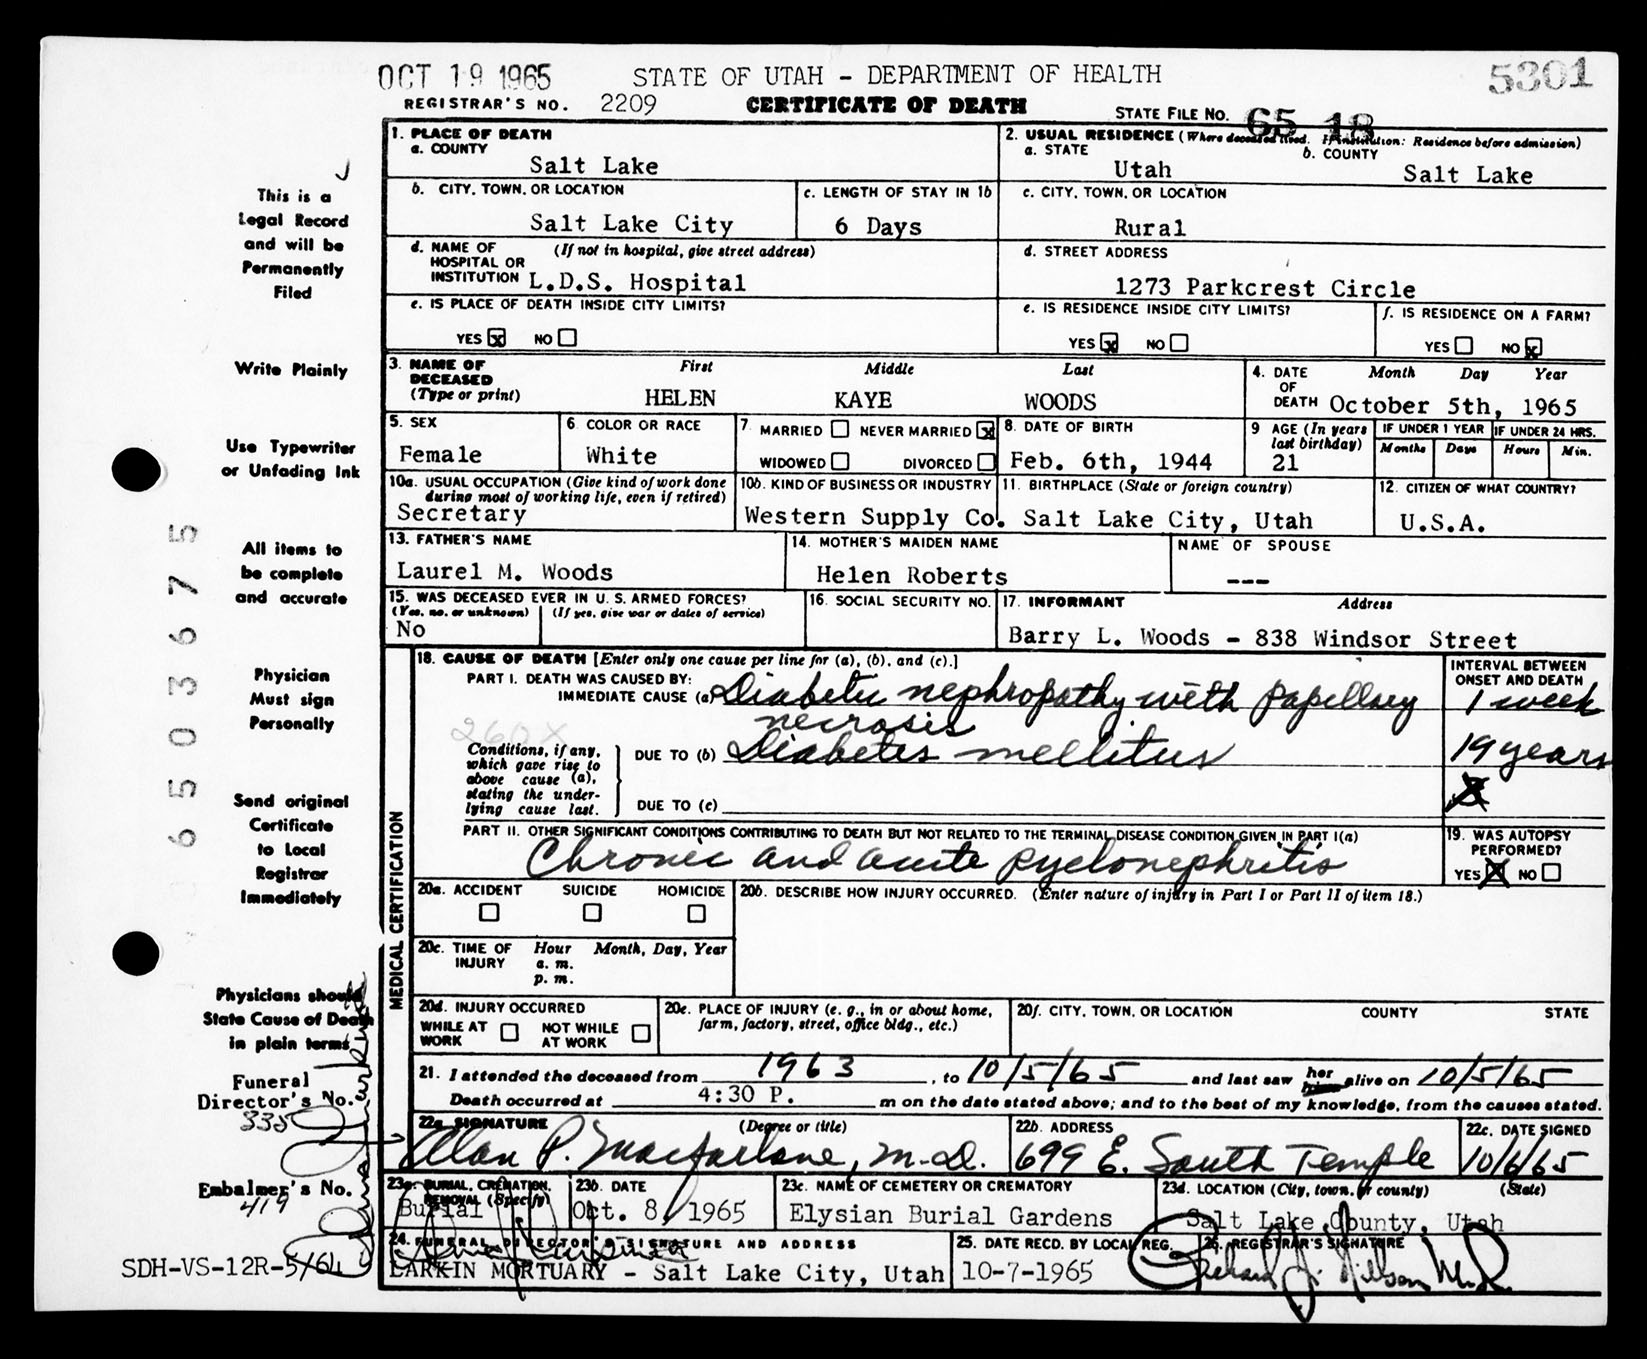 OCT 19 1965 STATE OF UTAH - DEPARTMENT OF HEALTH 5301
REGISTRAR'S NO. 2209 CERTIFICATE OF DEATH STATE FILE NO. 65 18
This is a
Legal Record
and will be
Permanently
Filed
Write Plainly
Use Typewriter
or Unfading Ink
All items to
be complete
and accurate
Physician
Must sign
Personally
Send original
Certificate
to Local
Registrar
Immediately
Physicians should
State Cause of Death
in plain terms
Funeral
Director's No.
335
Embalmer's No.
419
SDH-VS-12R-5/64
6 5 0 3 6 7 5
1. PLACE OF DEATH
a. COUNTY
Salt Lake
2. USUAL RESIDENCE (Where deceased lived. If institution: Residence before admission)
a. STATE b. COUNTY
Utah Salt Lake
b. CITY, TOWN, OR LOCATION
Salt Lake City
c. LENGTH OF STAY IN 1b
6 Days
c. CITY, TOWN, OR LOCATION
Rural
d. NAME OF (If not in hospital, give street address)
HOSPITAL OR
INSTITUTION L.D.S. Hospital
d. STREET ADDRESS
1273 Parkcrest Circle
e. IS PLACE OF DEATH INSIDE CITY LIMITS?
YES x NO
e. IS RESIDENCE INSIDE CITY LIMITS?
YES x NO
f. IS RESIDENCE ON A FARM?
YES NO x
3. NAME OF DECEASED (Type or print)
First Middle Last
HELEN KAYE WOODS
4. DATE OF DEATH Month Day Year
October 5th, 1965
5. SEX
Female
6. COLOR OR RACE
White
7. MARRIED NEVER MARRIED x
WIDOWED DIVORCED
8. DATE OF BIRTH
Feb. 6th, 1944
9 AGE (In years last birthday)
21
IF UNDER 1 YEAR IF UNDER 24 HRS.
Months Days Hours Min.
10a. USUAL OCCUPATION (Give kind of work done
during most of working life, even if retired)
Secretary
10b. KIND OF BUSINESS OR INDUSTRY
Western Supply Co.
11. BIRTHPLACE (State or foreign country)
Salt Lake City, Utah
12. CITIZEN OF WHAT COUNTRY?
U.S.A.
13. FATHER'S NAME
Laurel M. Woods
14. MOTHER'S MAIDEN NAME
Helen Roberts
NAME OF SPOUSE
---
15. WAS DECEASED EVER IN U. S. ARMED FORCES?
(Yes, no, or unknown) (If yes, give war or dates of service)
No
16. SOCIAL SECURITY NO.
17. INFORMANT Address
Barry L. Woods - 838 Windsor Street
MEDICAL CERTIFICATION
18. CAUSE OF DEATH [Enter only one cause per line for (a), (b), and (c).]
INTERVAL BETWEEN
ONSET AND DEATH
PART I. DEATH WAS CAUSED BY:
IMMEDIATE CAUSE (a) Diabetic nephropathy with papillary 1 week
necrosis
260X
Conditions, if any,
which gave rise to
above cause (a),
stating the under-
lying cause last.
DUE TO (b) Diabetes mellitus 19 years
DUE TO (c)
PART II. OTHER SIGNIFICANT CONDITIONS CONTRIBUTING TO DEATH BUT NOT RELATED TO THE TERMINAL DISEASE CONDITION GIVEN IN PART I(a)
Chronic and acute pyelonephritis
19. WAS AUTOPSY
PERFORMED?
YES X NO
20a. ACCIDENT SUICIDE HOMICIDE
20b. DESCRIBE HOW INJURY OCCURRED. (Enter nature of injury in Part I or Part II of item 18.)
20c. TIME OF INJURY Hour Month, Day, Year
a. m.
p. m.
20d. INJURY OCCURRED
WHILE AT WORK NOT WHILE AT WORK
20e. PLACE OF INJURY (e. g., in or about home,
farm, factory, street, office bldg., etc.)
20f. CITY, TOWN, OR LOCATION COUNTY STATE
21. I attended the deceased from 1963, to 10/5/65 and last saw her him alive on 10/5/65
Death occurred at 4:30 P. m on the date stated above; and to the best of my knowledge, from the causes stated.
22a. SIGNATURE (Degree or title)
Alan P. Macfarlane, M.D.
22b. ADDRESS
699 E. South Temple
22c. DATE SIGNED
10/6/65
23a. BURIAL, CREMATION,
REMOVAL (Specify)
Burial
23b. DATE
Oct. 8, 1965
23c. NAME OF CEMETERY OR CREMATORY
Elysian Burial Gardens
23d. LOCATION (City, town, or county) (State)
Salt Lake County, Utah
24. FUNERAL DIRECTOR'S SIGNATURE AND ADDRESS
LARKIN MORTUARY - Salt Lake City, Utah
25. DATE RECD. BY LOCAL REG.
10-7-1965
26. REGISTRAR'S SIGNATURE